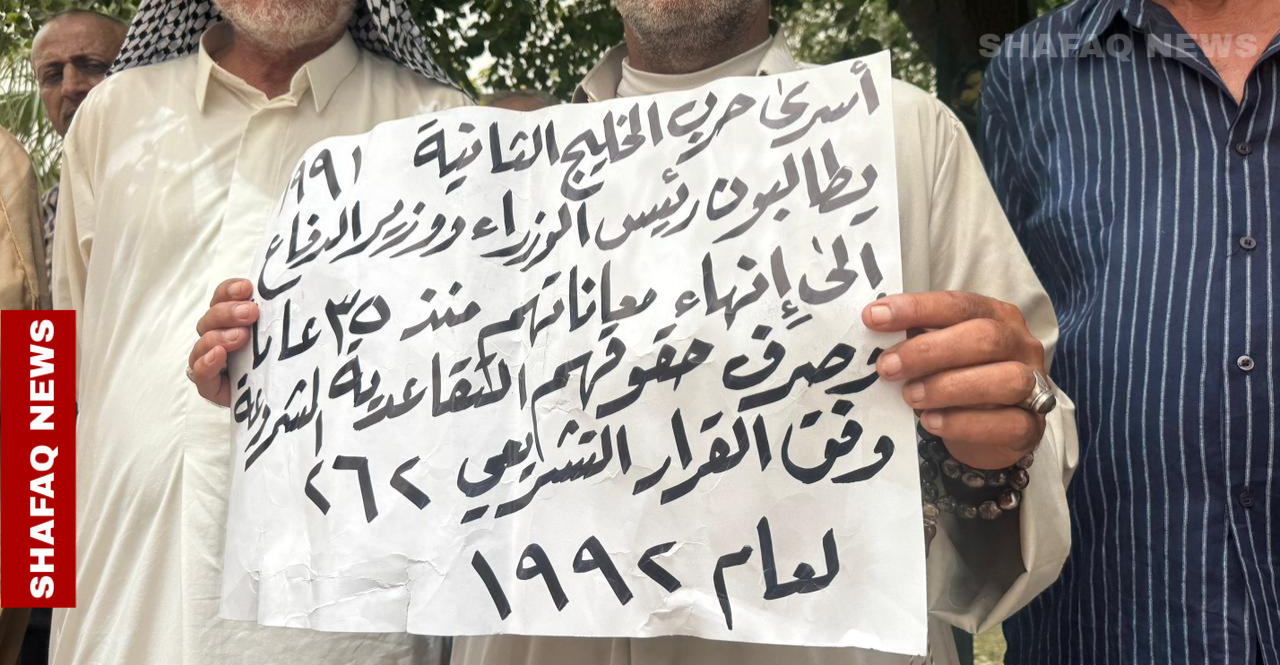 SHAFAQ NEWS
أسرى حرب الخليج الثانية ١٩٩١
يطالبون رئيس الوزراء ووزير الدفاع
إلى إنهاء معاناتهم منذ ٣٥ عاماً
وصرف حقوقهم التقاعدية المشروعة
وفق القرار التشريعي ٢٦٢
لعام ١٩٩٢
SHAFAQ NEWS